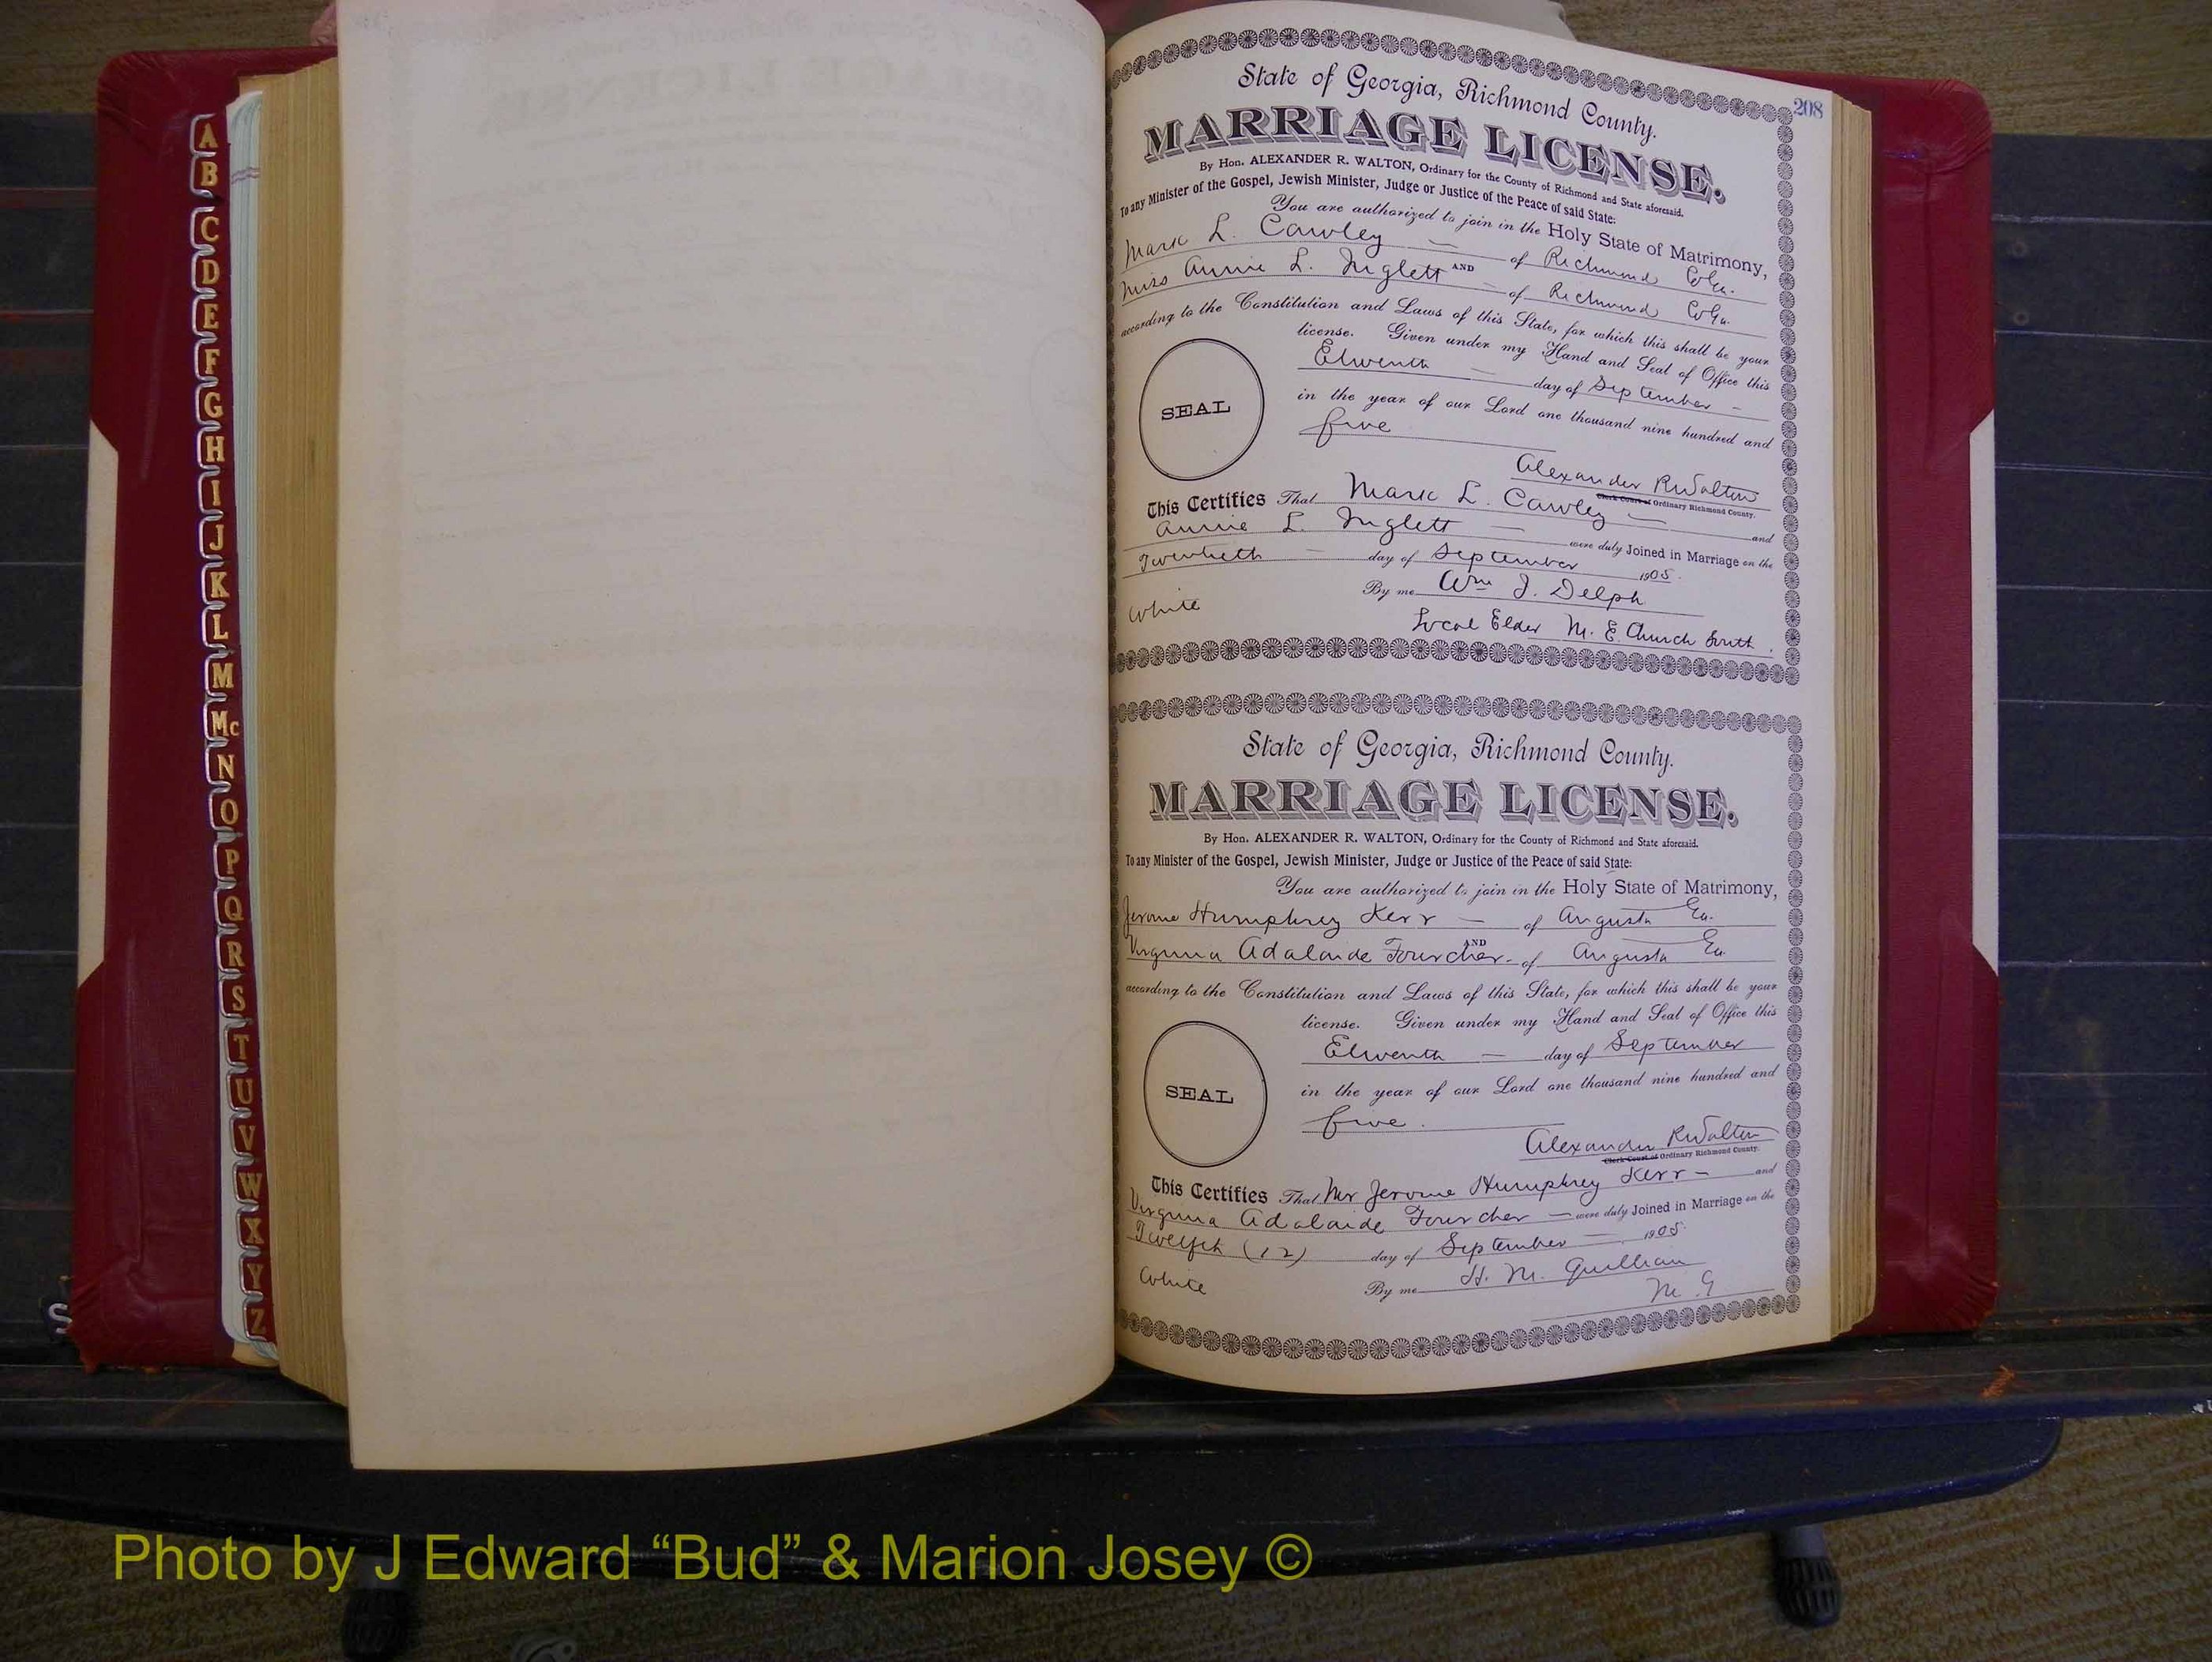 A
B
C
D
E
F
G
H
I
J
K
L
M
Mc
N
O
P
Q
R
S
T
U
V
W
X
Y
Z
208
State of Georgia, Richmond County.
MARRIAGE LICENSE.
By Hon. ALEXANDER R. WALTON, Ordinary for the County of Richmond and State aforesaid.
To any Minister of the Gospel, Jewish Minister, Judge or Justice of the Peace of said State:
You are authorized to join in the Holy State of Matrimony,
Mark L. Cawley — of Richmond Co Ga.
AND
Miss Annie L. Inglett — of Richmond Co Ga.
according to the Constitution and Laws of this State, for which this shall be your
license. Given under my Hand and Seal of Office this
Eleventh — day of September —
in the year of our Lord one thousand nine hundred and
five
SEAL
Alexander R Walton
Clerk Court of Ordinary Richmond County.
This Certifies That Mark L. Cawley — and
Annie L. Inglett — were duly Joined in Marriage on the
Twentieth — day of September 1905.
By me Wm J. Delph
White
Local Elder M. E. Church South.
State of Georgia, Richmond County.
MARRIAGE LICENSE.
By Hon. ALEXANDER R. WALTON, Ordinary for the County of Richmond and State aforesaid.
To any Minister of the Gospel, Jewish Minister, Judge or Justice of the Peace of said State:
You are authorized to join in the Holy State of Matrimony,
Jerome Humphrey Kerr — of Augusta Ga.
AND
Virginia Adalaide Fourcher - of Augusta Ga.
according to the Constitution and Laws of this State, for which this shall be your
license. Given under my Hand and Seal of Office this
Eleventh — day of September
in the year of our Lord one thousand nine hundred and
five.
SEAL
Alexander R Walton
Clerk Court of Ordinary Richmond County.
This Certifies That Mr Jerome Humphrey Kerr — and
Virginia Adalaide Fourcher — were duly Joined in Marriage on the
Twelfth (12) day of September — 1905.
White
By me H. M. Quillian
M. G
Photo by J Edward “Bud” & Marion Josey ©